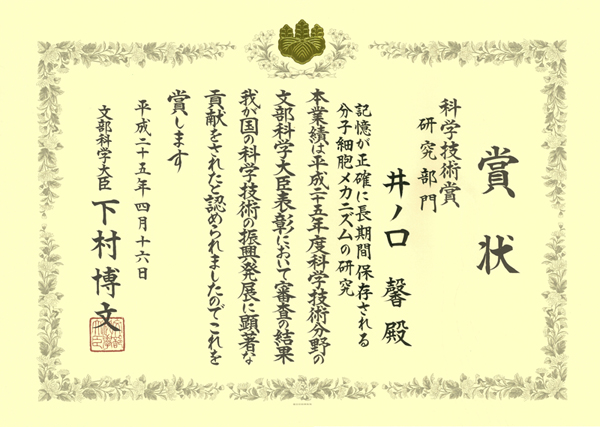 賞状
科学技術賞
研究部門
井ノ口 馨 殿
記憶が正確に長期間保存される
分子細胞メカニズムの研究
本業績は平成二十五年度科学技術分野の
文部科学大臣表彰において審査の結果
我が国の科学技術の振興発展に顕著な
貢献をされたと認められましたのでこれを
賞します
平成二十五年四月十六日
文部科学大臣 下村博文